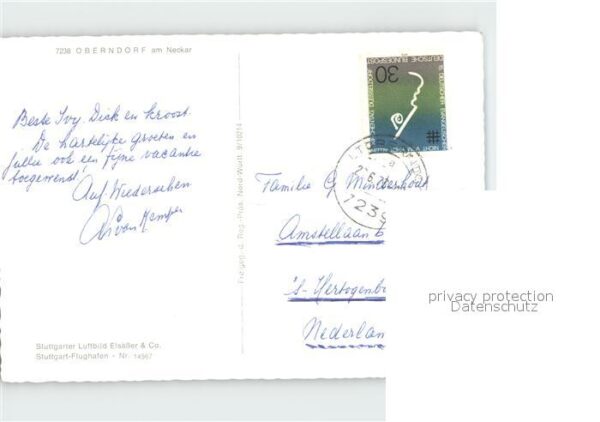 7238 OBERNDORF am Neckar
Beste Ivy, Dick en kroost.
De hartelijke groeten en
jullie ook een fijne vacantie
toegewenst!
Auf Wiedersehen
Ria van Kemper
Stuttgarter Luftbild Elsäßer & Co.
Stuttgart-Flughafen - Nr. 14567
Freigeg. d. Reg.-Präs. Nord-Württ. 9/10214
DEUTSCHE BUNDESPOST
30
Familie G Mindenhout
Amstellaan 6
's-Hertogenb
Nederlan
privacy protection
Datenschutz